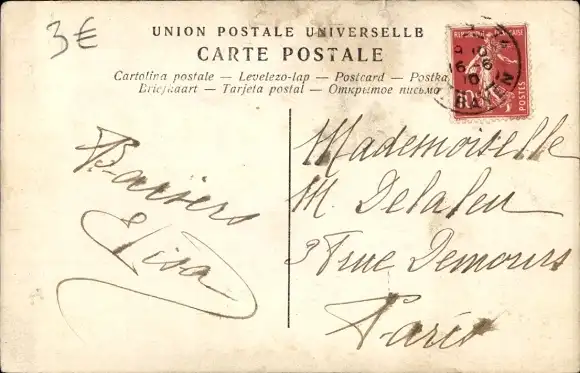 3€
UNION POSTALE UNIVERSELLE
CARTE POSTALE
Cartolina postale — Levelezo-lap — Postcard — Postka
Briefkaart — Tarjeta postal — Открытое письмо
POSTES
10
Baisers
Lisa
Mademoiselle
M. Delaleu
rue Demours
Paris